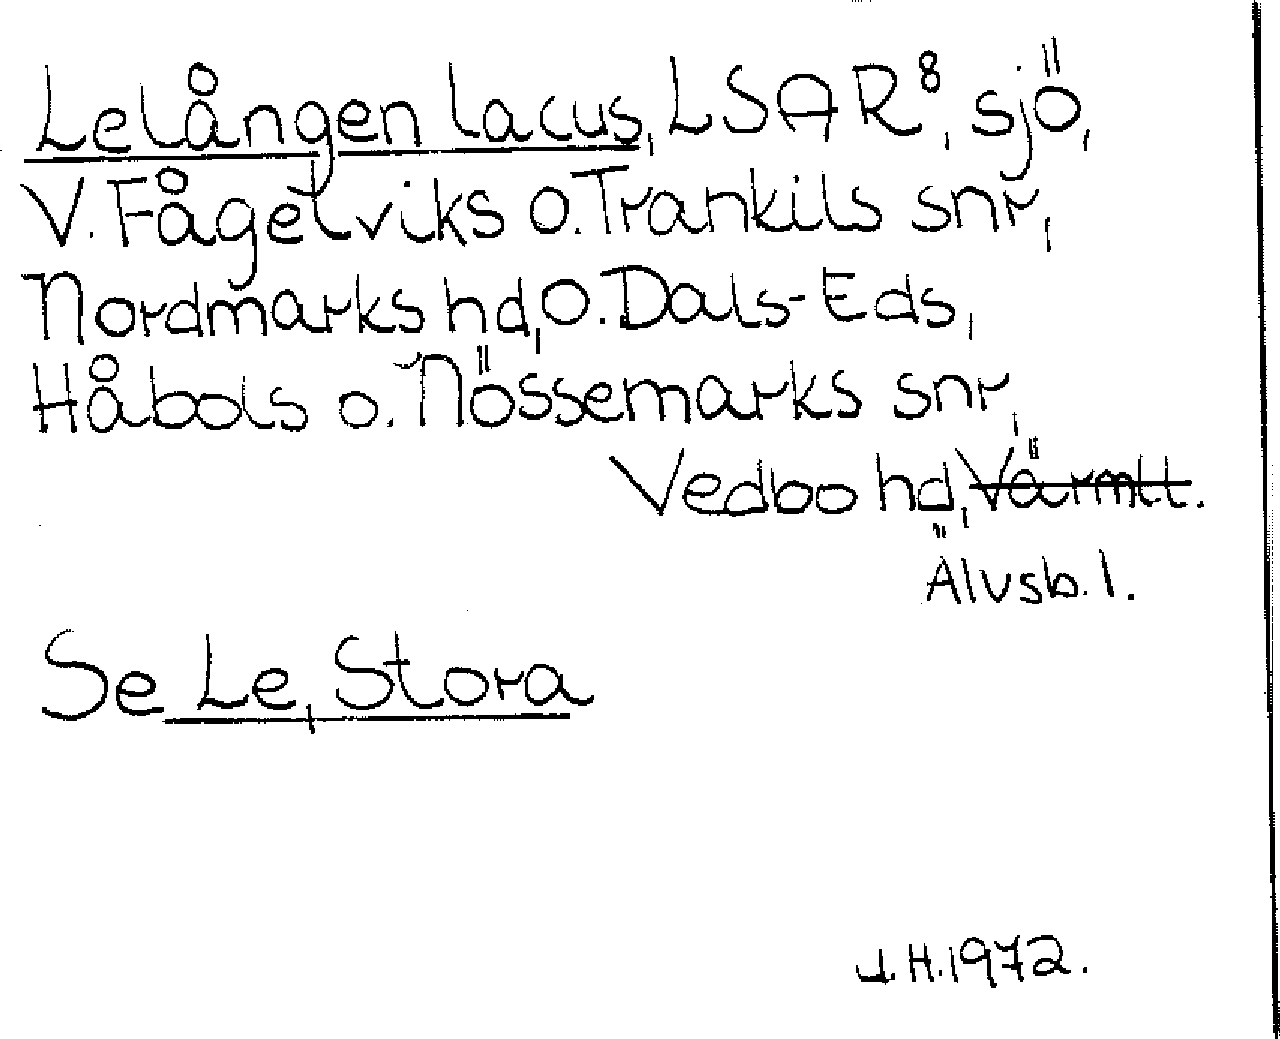 Lelången lacus, LSAR⁸, sjö,
V. Fågelviks o. Trankils snr,
Nordmarks hd, o. Dals-Eds,
Håbols o. Nössemarks snr,
Vedbo hd, Värmtt.
Älvsb. l.
Se Le, Stora
J.H. 1972.